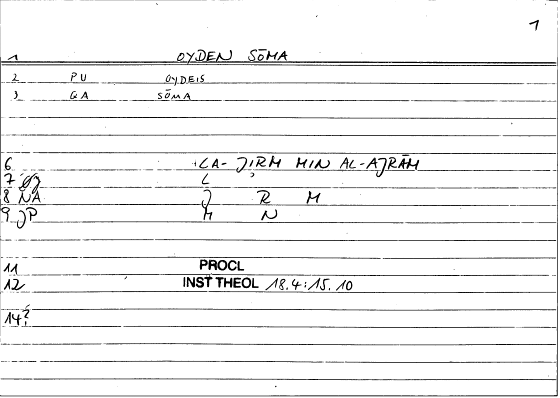 1
1 OYDEN SŌMA
2 PU OYDEIS
3 QA SŌMA
6 +LA- JIRM MIN AL-AJRĀM
7 L ʾ
8 NA J R M
9 JP M N
11 PROCL
12 INST THEOL 18.4:15.10
14?